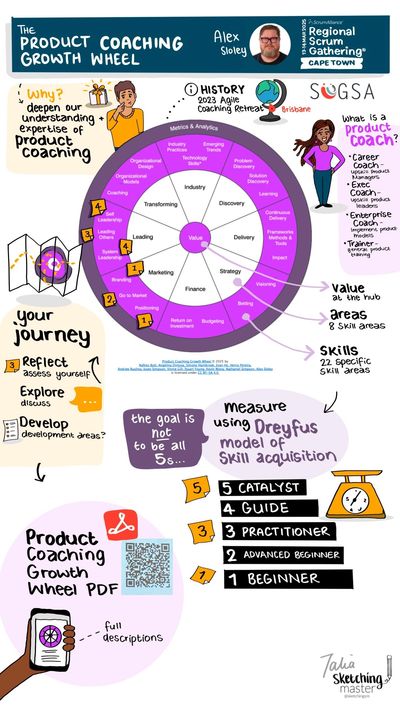 THE
PRODUCT COACHING
GROWTH WHEEL
Alex
Sloley
13-14 MAR 2025
ScrumAlliance
Regional
Scrum
Gathering®
CAPE TOWN
Why?
deepen our
understanding +
expertise of
product
coaching
HISTORY
2023 Agile
Coaching Retreat
Brisbane
SUGSA
What is a
product
coach?
• Career
Coach -
upskill product
managers
• Exec
Coach -
upskill product
leaders
• Enterprise
Coach -
implement product
models
• Trainer -
general product
training
Metrics & Analytics
Industry
Practices
Emerging
Trends
Technology
Skills*
Organizational
Design
Organizational
Models
Coaching
Self
Leadership
Leading
Others
System
Leadership
Branding
Go to Market
Positioning
Return on
Investment
Budgeting
Betting
Visioning
Impact
Frameworks
Methods &
Tools
Continuous
Delivery
Learning
Solution
Discovery
Problem
Discovery
Industry
Transforming
Discovery
Leading
Value
Delivery
Marketing
Strategy
Finance
4
3
4
1
2
1
value
at the hub
areas
8 skill areas
skills
22 specific
skill areas
Product Coaching Growth Wheel © 2025 by
is licensed under CC BY-SA 4.0
your
journey
3
Reflect
assess yourself
Explore
discuss ...
Develop
development areas?
the goal is
not
to be all
5s...
Measure
using Dreyfus
model of
skill acquisition
5
5 CATALYST
4 GUIDE
3
3 PRACTITIONER
2 ADVANCED BEGINNER
1
1 BEGINNER
Product
Coaching
Growth
Wheel PDF
full
descriptions
Talia
Sketching
master
@sketchingqm